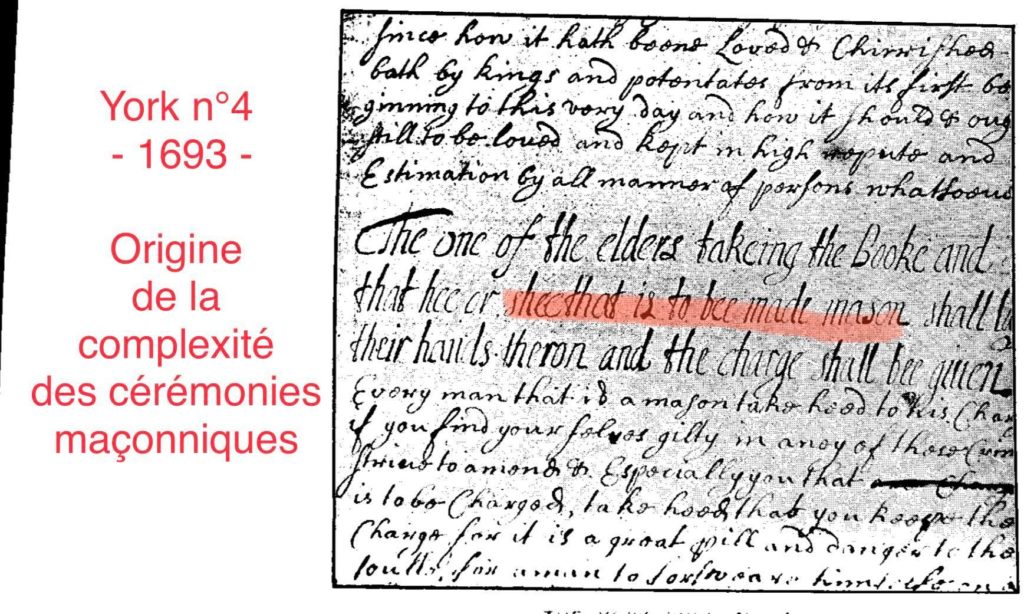 York n°4
- 1693 -
Origine
de la
complexité
des cérémonies
maçonniques
since how it hath beene Loved & Chirrished
bath by kings and potentates from its first be
ginning to this very day and how it should & oug
still to be loved and kept in high repute and
Estimation by all manner of persons whatsoeve
The one of the elders takeing the Booke and
that hee or shee that is to bee made mason shall
their hands theron and the charge shall bee given
Every man that is a mason take heed to his Char
if you find your selves gilty in aney of these
strive to amend & Especially you that
is to be Charged, take heed that you keepe the
Charge for it is a great pill and danger to the
soulls, for a man to forsweare himselfe